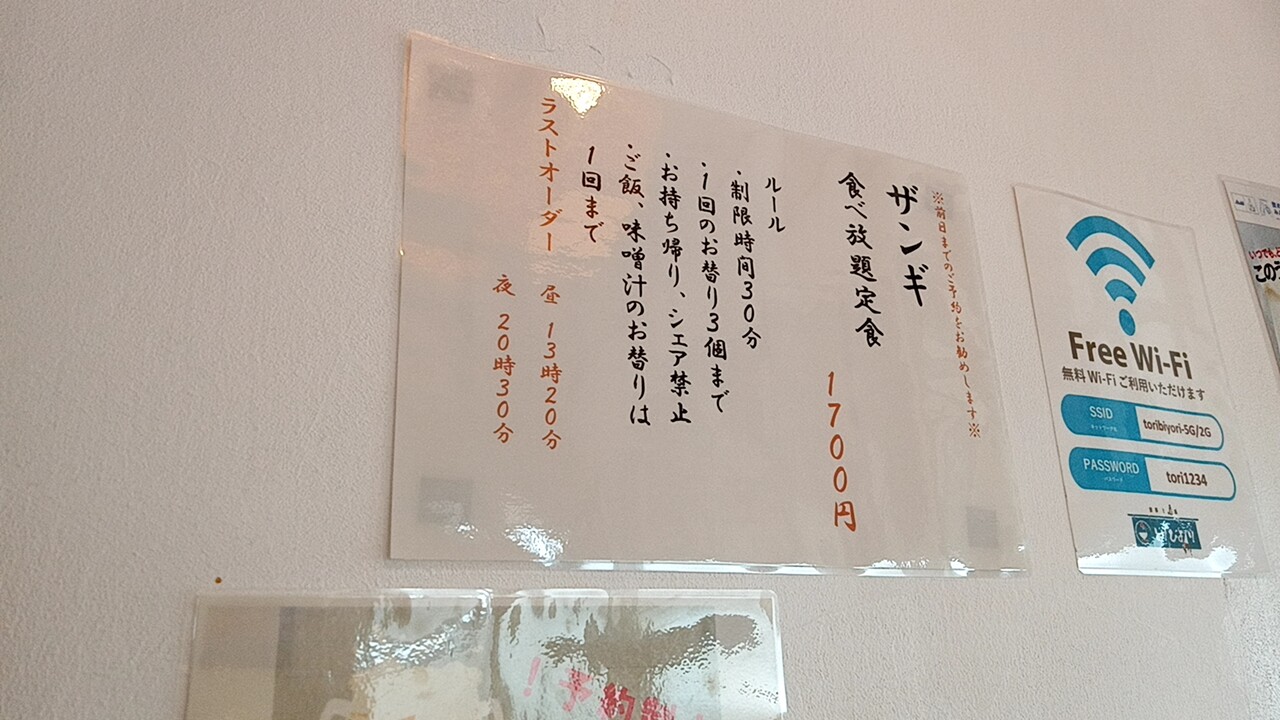 ※前日までのご予約をお勧めします※
ザンギ
食べ放題定食
1700円
ルール
・制限時間30分
・1回のお替り3個まで
・お持ち帰り、シェア禁止
・ご飯、味噌汁のお替りは
1回まで
ラストオーダー 昼 13時20分
夜 20時30分
Free Wi-Fi
無料 Wi-Fi ご利用いただけます
SSID
ネットワーク名
toribiyori-5G/2G
PASSWORD
パスワード
tori1234
いつでも
この
！予約制